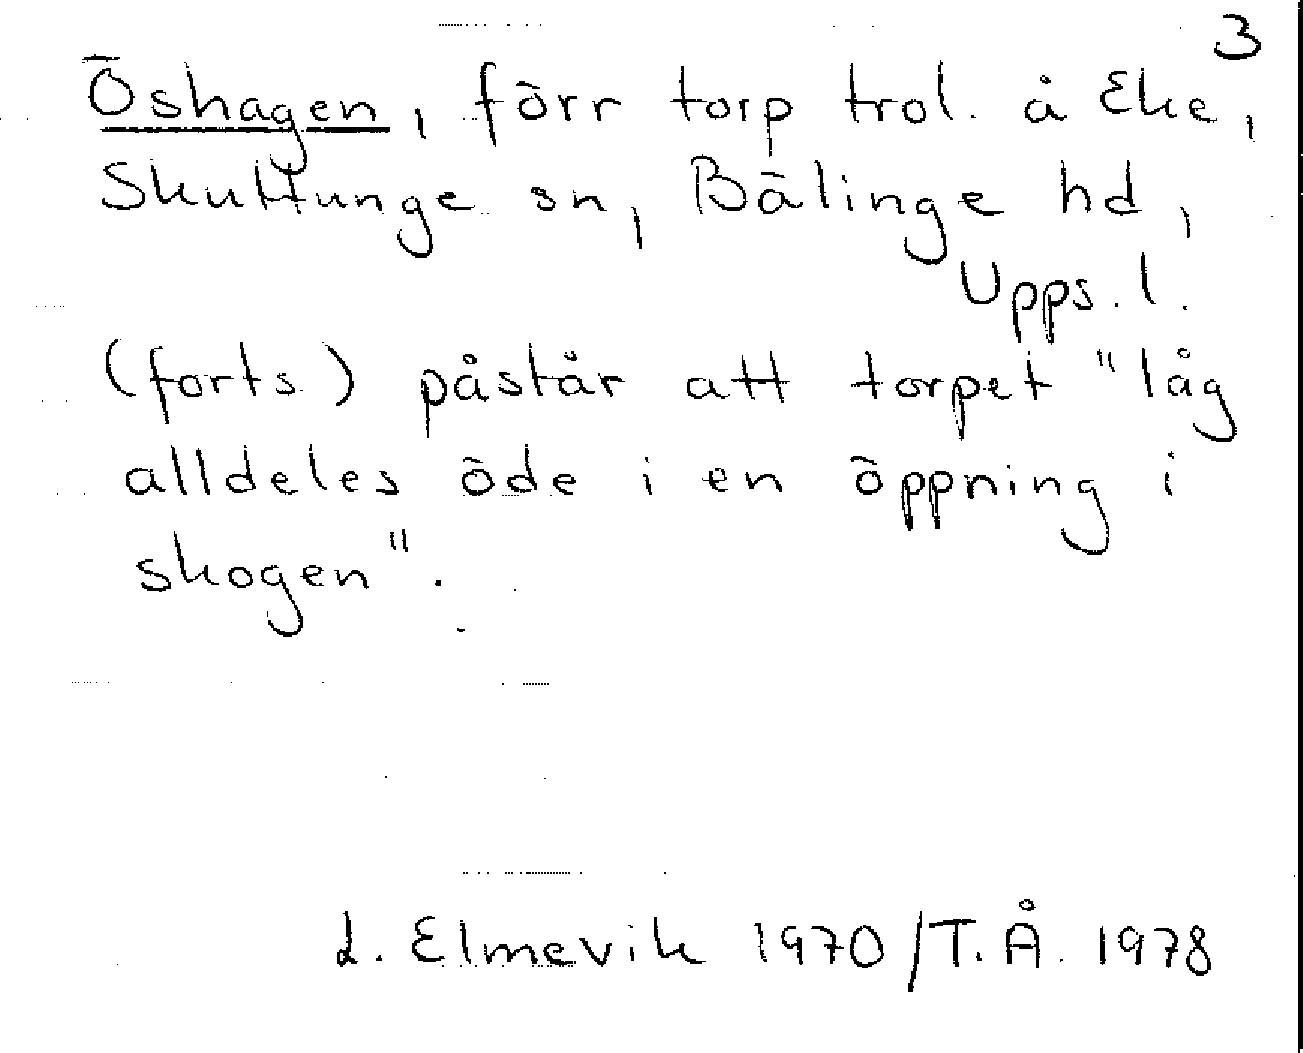 3
Öshagen, förr torp trol. å Eke,
Skuttunge sn, Bälinge hd,
Upps. l.
(forts.) påstår att torpet "låg
alldeles öde i en öppning i
skogen".
L. Elmevik 1970/T.Å. 1978